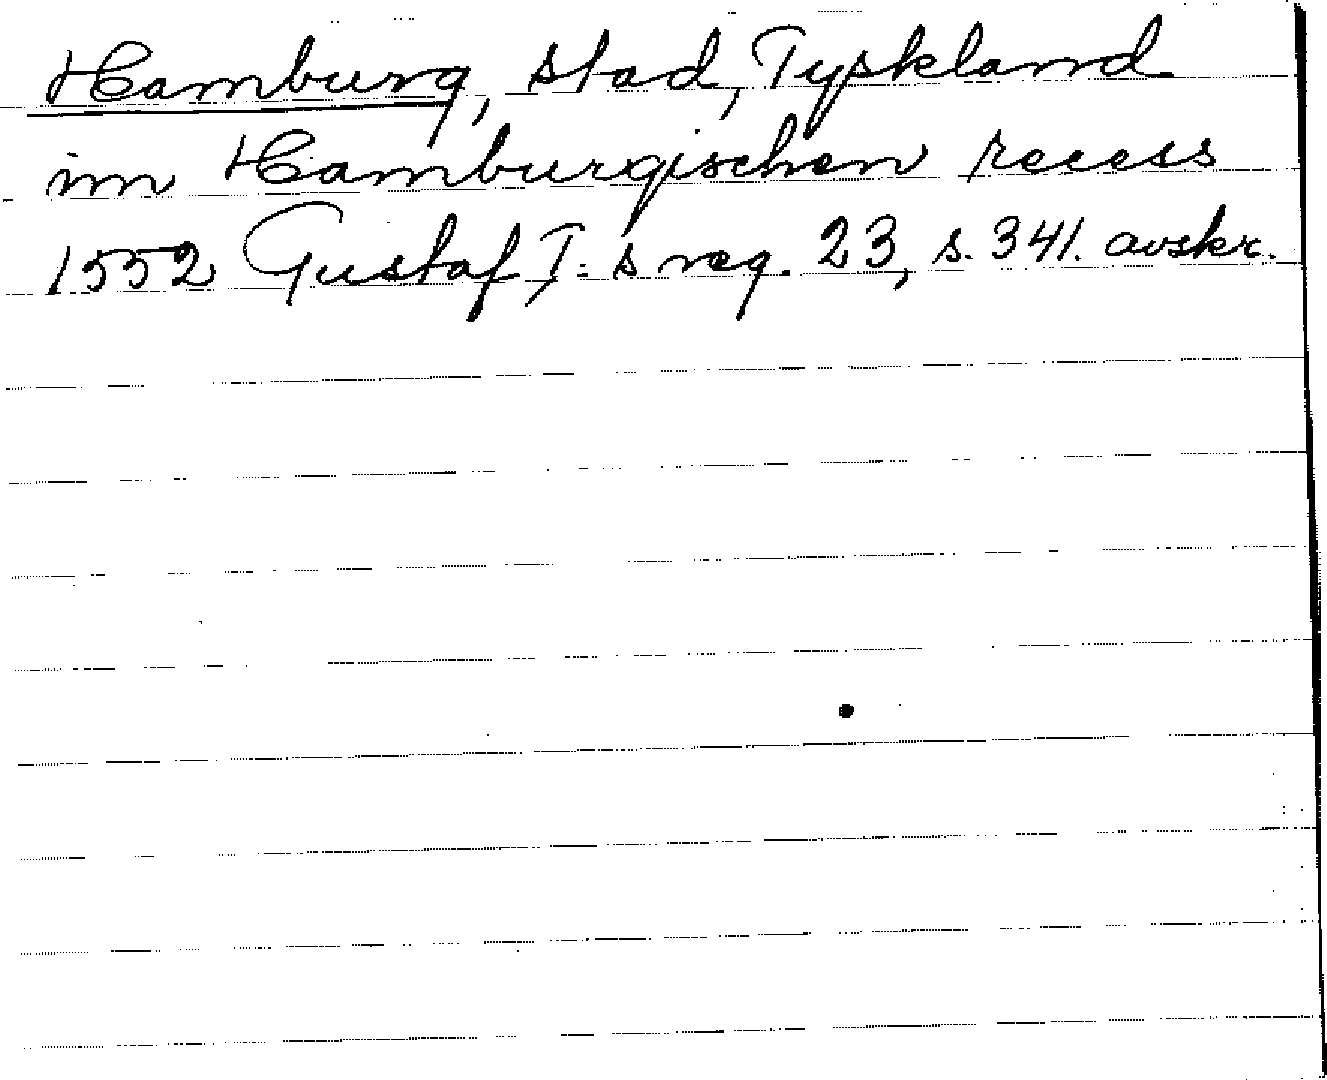 Hamburg, stad, Tyskland
im Hamburgischen recess
1552 Gustaf I:s reg. 23, s. 341. avskr.